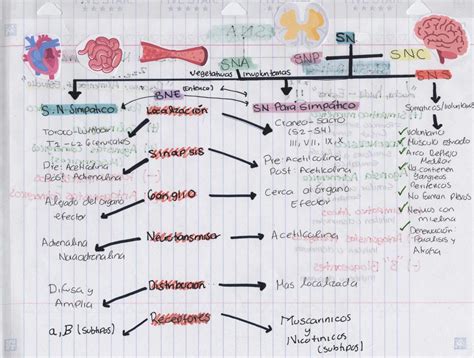 SN
SNA
SNP
SNC
SNS
Vegetativas | Involuntarias
(Entérico)
BNE
S.N Simpatico
Localización
SN Para Simpatico
Somaticas/voluntarias
Toraco-Lumbar
T2-L2 6 cervicales
Craneo-Sacro
(S2-S4)
III, VII, IX, X
Sinapsis
Pre: Acetilcolina
Post: Adrenalina
Pre: Acetilcolina
Post: Acetilcolina
Ganglio
Alejado del organo
efector
Cerca al órgano
Efector
Neurotransmisor
Adrenalina
Noradrenalina
Acetilcolina
Distribución
Difusa y
Amplia
Mas localizada
Receptores
a, B (subtipos)
Muscarinicos
y
Nicotinicos
(subtipos)
Voluntario
Músculo Estriado
Arco Reflejo
Medular
No contienen
Ganglios
Perifericos
No forman Plexos
Nervios con
mielina
Denervación
Paralisis y
Atrofia